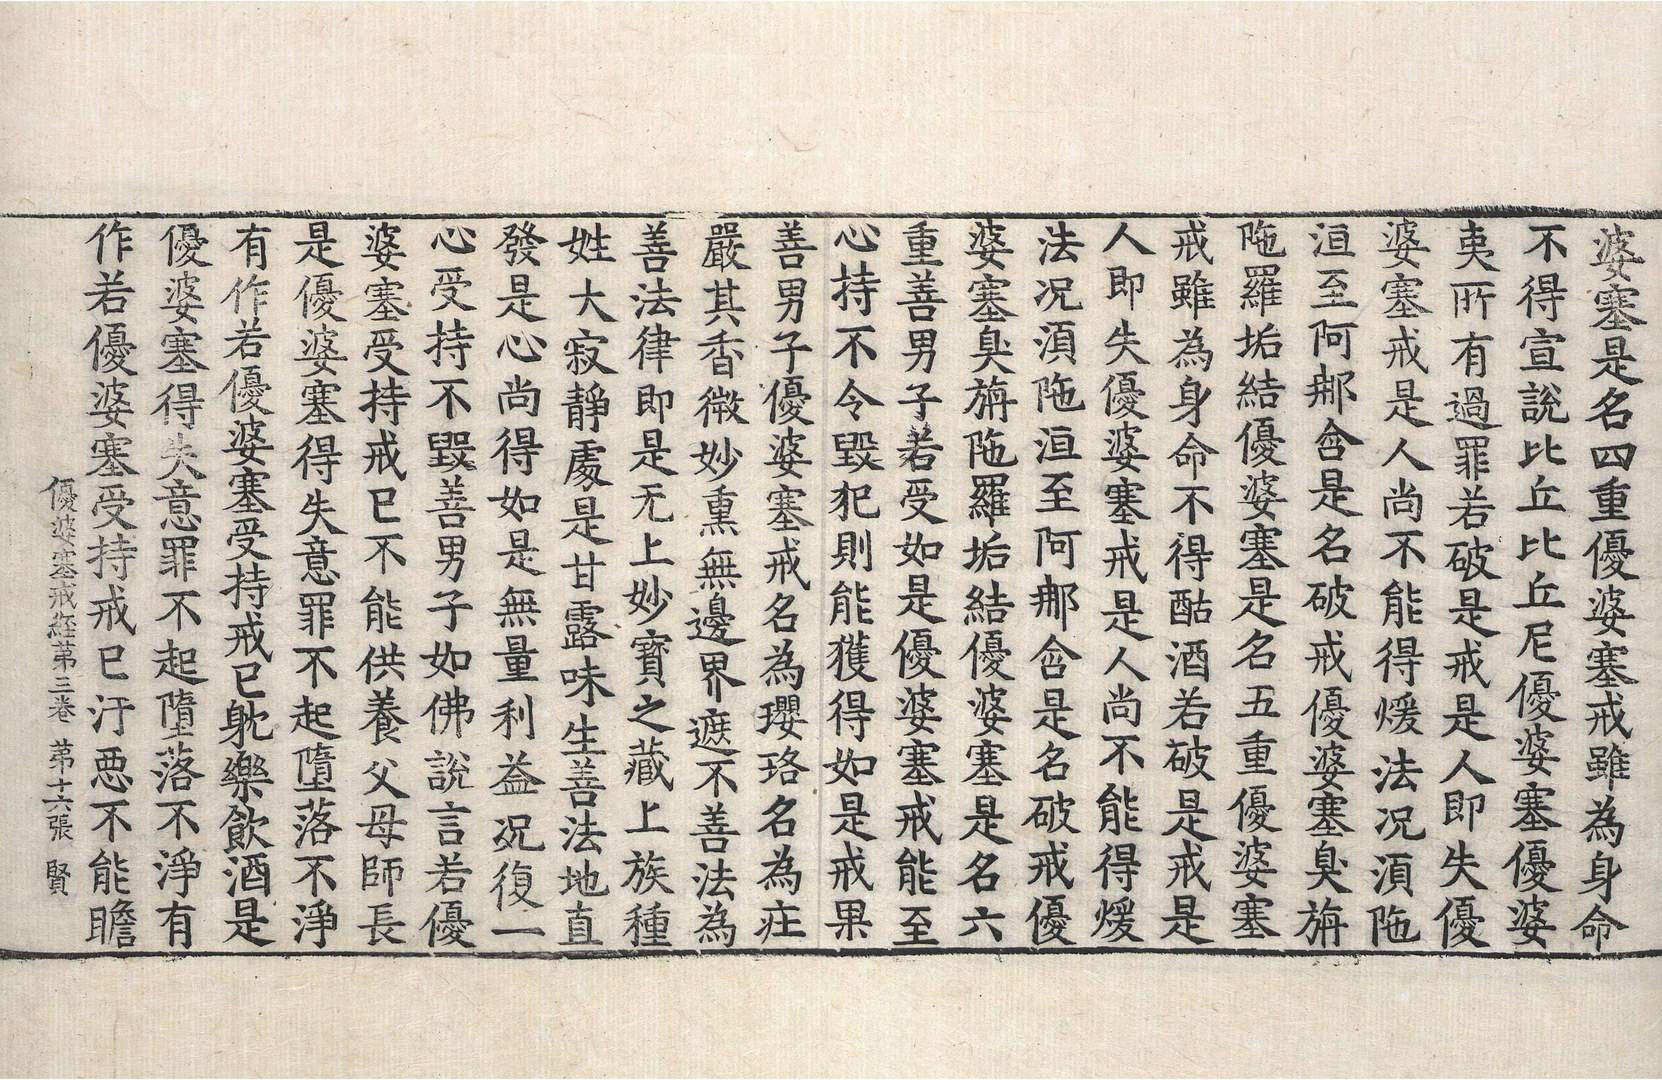 婆塞是名四重優婆塞戒雖為身命
不得宣說比丘比丘尼優婆塞優婆
夷所有過罪若破是戒是人即失優
婆塞戒是人尚不能得煖法况湏陁
洹至阿那含是名破戒優婆塞臭旃
陁羅垢結優婆塞是名五重優婆塞
戒雖為身命不得酤酒若破是戒是
人即失優婆塞戒是人尚不能得煖
法况湏陁洹至阿那含是名破戒優
婆塞臭旃陁羅垢結優婆塞是名六
重善男子若受如是優婆塞戒能至
心持不令毀犯則能獲得如是戒果
善男子優婆塞戒名為瓔珞名為庄
嚴其香微妙熏無邊界遮不善法為
善法律即是无上妙寶之藏上族種
姓大寂靜處是甘露味生善法地直
發是心尚得如是無量利益况復一
心受持不毀善男子如佛說言若優
婆塞受持戒已不能供養父母師長
是優婆塞得失意罪不起墮落不淨
有作若優婆塞受持戒已躭樂飲酒是
優婆塞得失意罪不起墮落不淨有
作若優婆塞受持戒已汙惡不能瞻
優婆塞戒經第三卷 第十六張 賢